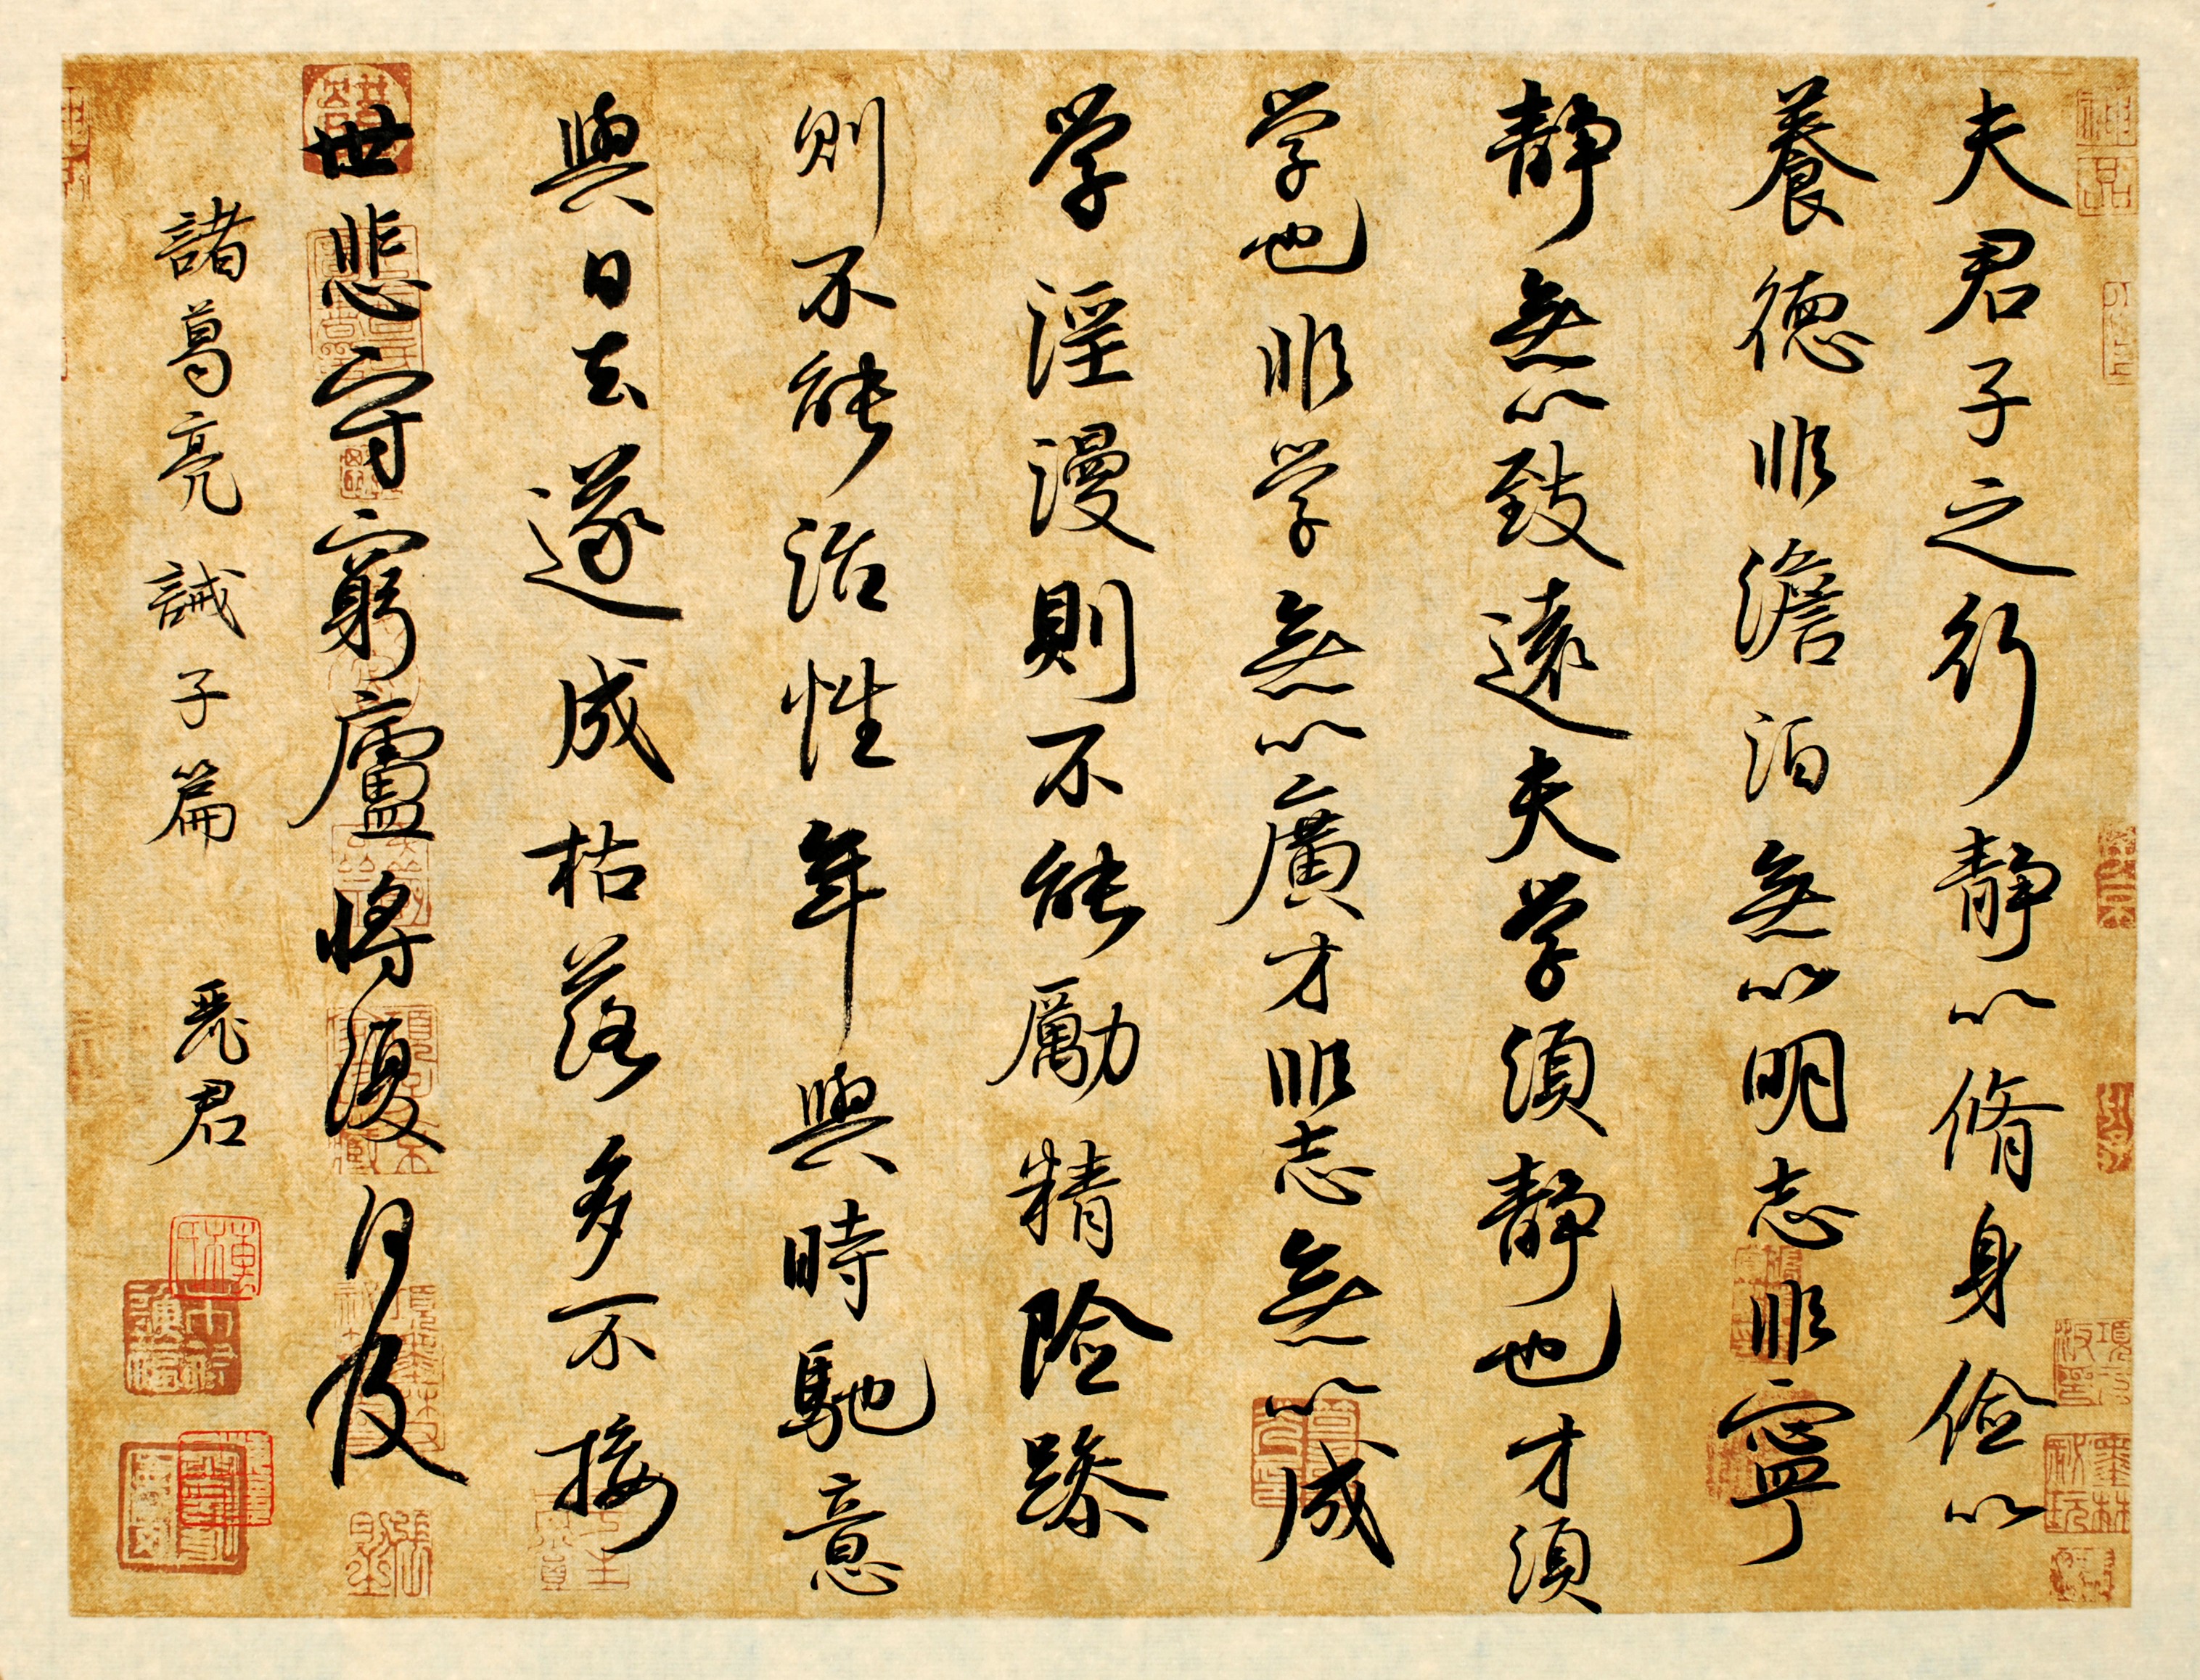 夫君子之行靜以脩身俭以
養德非澹泊無以明志非寧
靜無以致遠夫学須靜也才須
学也非学無以廣才非志無以成
学淫漫則不能勵精险躁
則不能治性年與時馳意
與日去遂成枯落多不接
世悲守窮廬將復何及
諸葛亮誡子篇 麗君